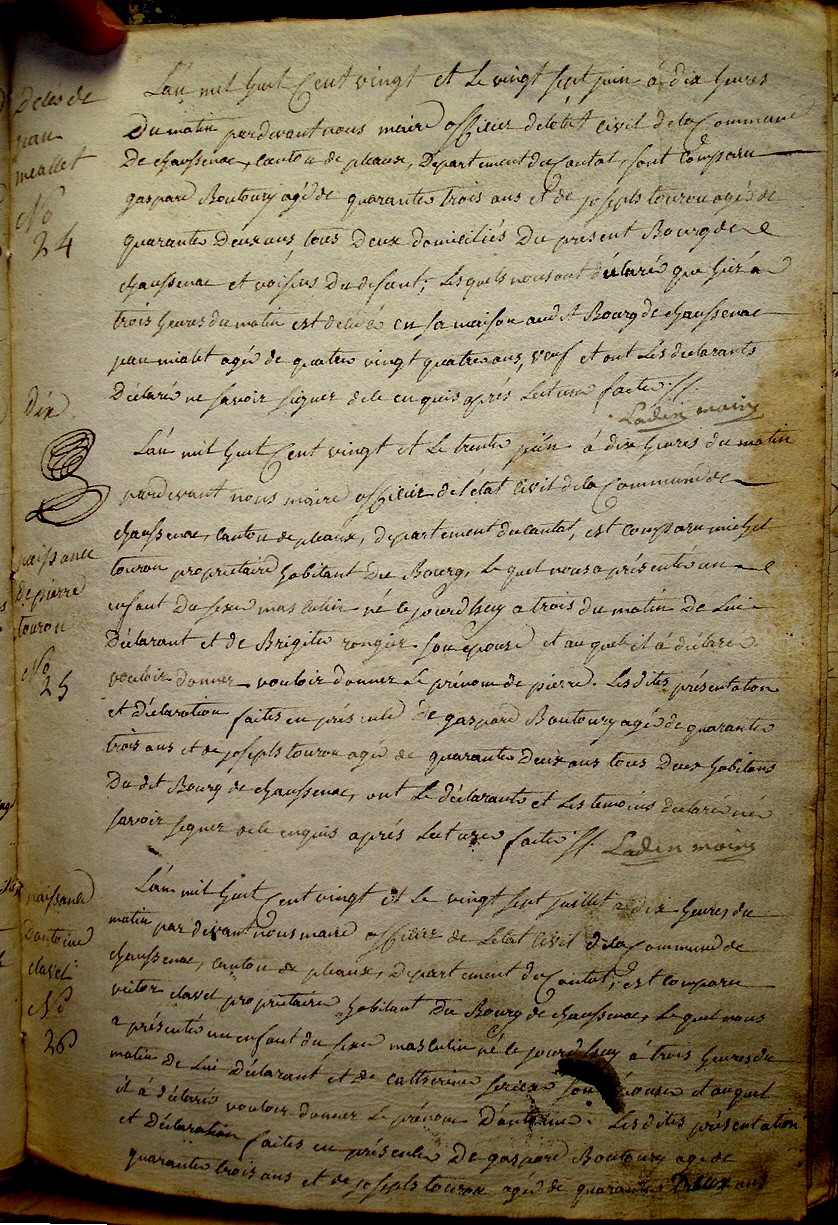 Deces de
jean
meallet
No
24
L'an mil huit Cent vingt et Le vingt sept juin à dix heures
Du matin pardevant nous maire officier de létat civil de la Commune
De chaussenac, canton de pleaux, Département du Cantal, sont Comparu
gaspard Boutoury agé de quarante trois ans et de joseph touron agé de
quarante deux ans tous Deux domiciliés Du présent Bourg de
chaussenac et voisins Du défunt, Lesquels nous ont déclaré que hier a
trois heures du matin est décédé en sa maison audit Bourg de chaussenac
jean mialet agé de quatre vingt quatre ans, veuf et ont Les déclarants
Déclaré ne savoir signer de ce enquis après Lecture faite //.
Laden maire
dix
L'an mil huit Cent vingt et Le trente juin à dix heures du matin
pardevant nous maire officier de l'état civil de la Commune de
chaussenac, canton de pleaux, département du cantal, est comparu michel
touron propriétaire habitant Du Bourg, Lequel nous a présenté un
enfant Du sexe masculin né ce jourd'huy a trois du matin De Lui
Déclarant et de Brigite rongier son épouse et auquel il à déclaré
vouloir donner vouloir donner Le prénom de pierre. Les dites présentation
et déclaration faites en présence De gaspard Boutoury agé de quarante
trois ans et de joseph touron agé de quarante Deux ans tous Deux habitans
Du dit Bourg de chaussenac, ont Le déclarant et Les témoins déclaré ne
savoir signer de ce enquis après Lecture faite //. Laden maire
naissance
de pierre
touron
No
25
L'an mil huit Cent vingt et Le vingt sept juillet a dix heures du
matin par devant nous maire officier de Létat civil de la Commune de
chaussenac, canton de pleaux, département du Cantal, est comparu
victor clavel propriétaire habitant Du Bourg de chaussenac, Lequel nous
a présenté un enfant du sexe masculin né ce jourd'huy à trois heures du
matin de Lui Déclarant et De catherine son épouse et auquel
il à déclaré vouloir donner Le prénom D'antoine. Les dites présentation
et Déclaration faites en présence De gaspard Boutoury agé de
quarante trois ans et de joseph touron agé de quarante Deux ans
naissance
D'antoine
clavel
No
26